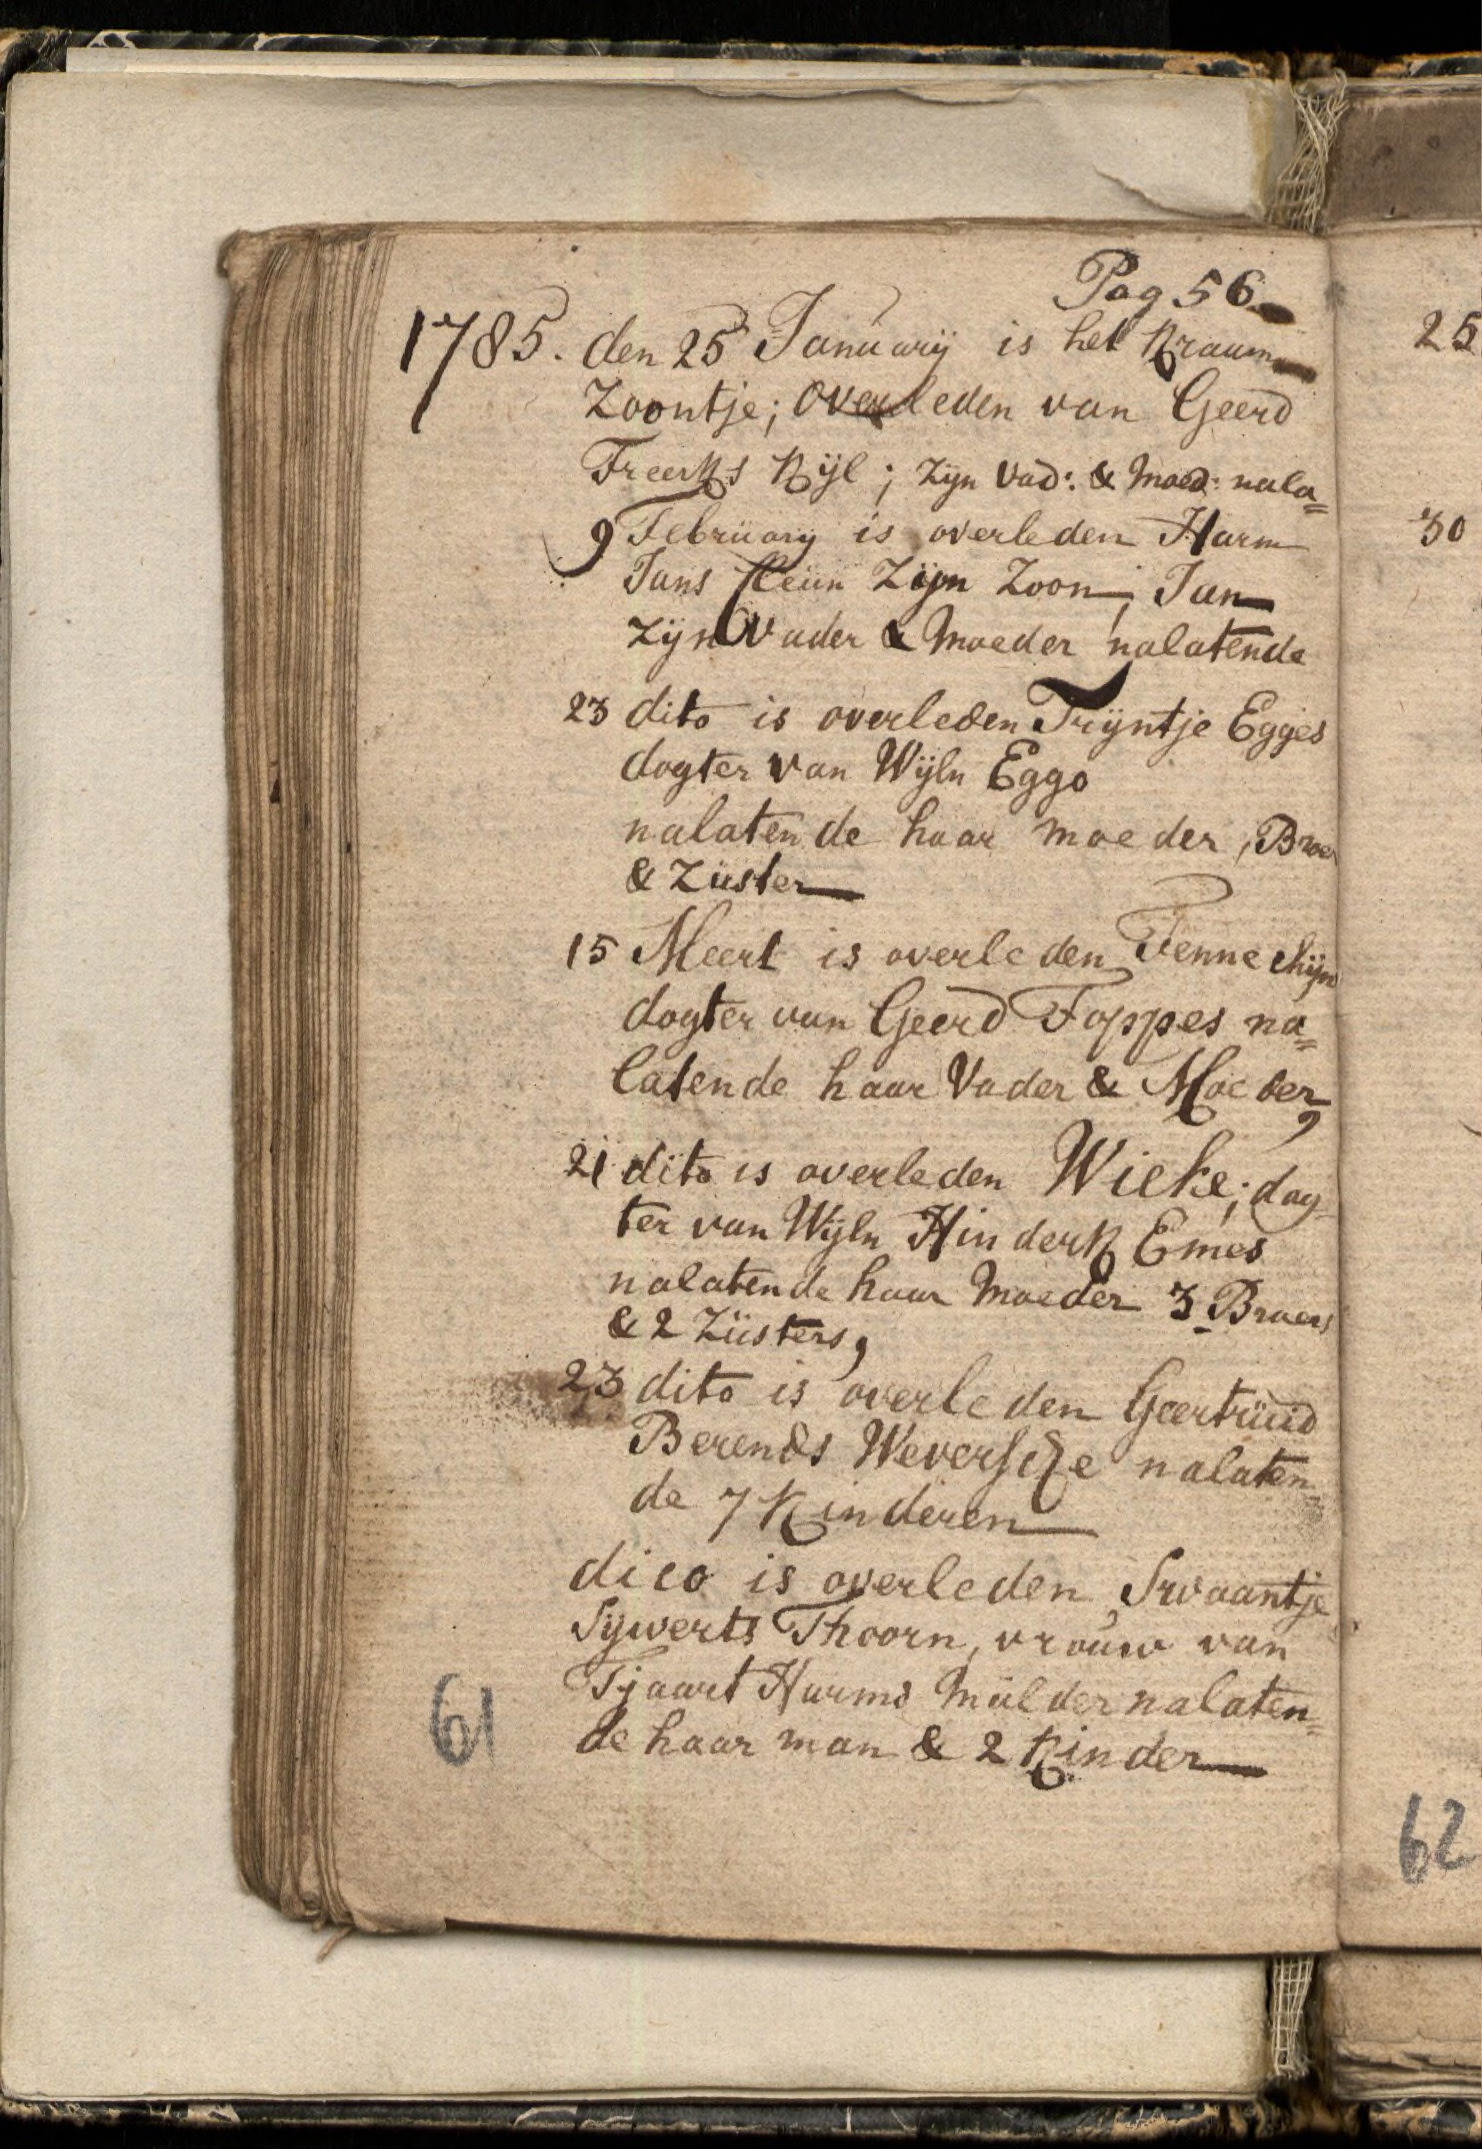 Pag 56
1785. den 25 Januarij is het Kraam
Zoontje; Overleden van Geerd
Freerks Kijl; Zijn Vad: & Moed: nala=
9 Februarij is overleden Harm
Jans Zijn Zoon; Jan
Zijn Vader & Moeder nalatende
23 dito is overleden Trijntje Egges
dogter van Wijln Eggo
nalatende haar moeder, Broer
& Züster
15 Meert is overleden Fennechijn
dogter van Geerd Foppes na=
latende haar Vader & Moeder,
21 dito is overleden Wieke; dog=
ter van Wijln Hinderk Emes
nalatende haar Moeder 3 Broers
& 2 Züsters,
23 dito is overleden Geertrüid
Berends Wever nalaten=
de 7 Kinderen
dito is overleden Swaantje
Sijwerts Thoorn, vrouw van
Tjaart Harms Mülder nalaten=
de haar man & 2 Kinder
61
25
30
62